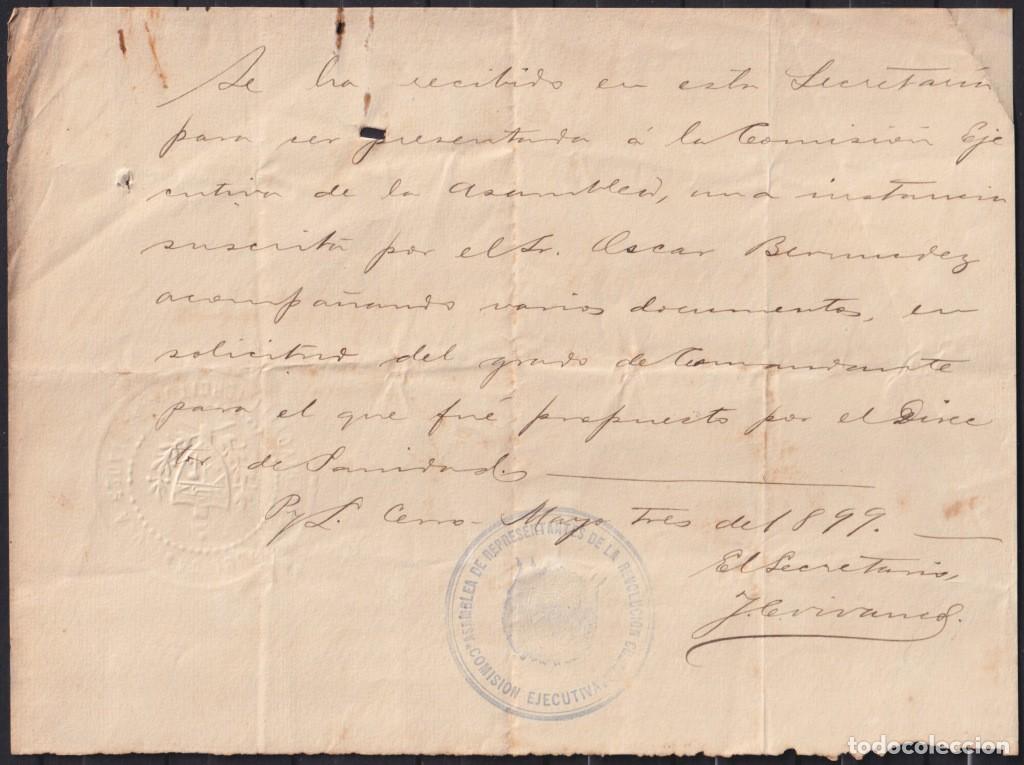 Se ha recibido en esta Secretaría
para ser presentada á la Comisión Eje
cutiva de la Asamblea, una instancia
suscrita por el Sr. Oscar Bermudez
acompañando varios documentos, en
solicitud del grado de Comandante
para el que fué propuesto por el Direc
tor de Sanidad.
P y L. Cerro Mayo tres de 1899.
El Secretario,
J. C. Vivanco.
ASAMBLEA DE REPRESENTANTES DE LA REVOLUCION
COMISION EJECUTIVA
todocoleccion